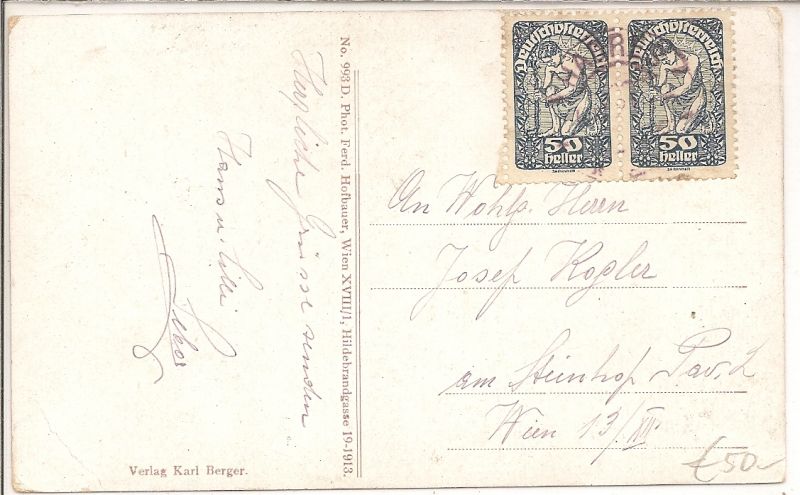 Herzliche Grüsse senden
Hans u. Lilli
No. 993D. Phot. Ferd. Hofbauer, Wien XVIII/1, Hildebrandgasse 19-1913.
Verlag Karl Berger.
Deutschösterreich
50
heller
Deutschösterreich
50
heller
An Wohlg. Herrn
Josef Kogler
am Steinhof Pav. 2
Wien 13/XII
£50-